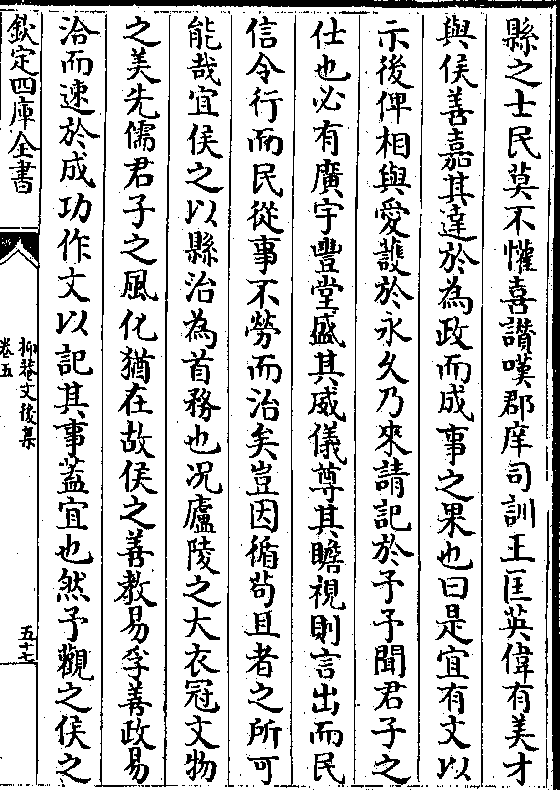 縣之士民莫不懽喜讃嘆郡庠司訓王匡英偉有美才
與侯善嘉其達於為政而成事之果也曰是宜有文以
示後俾相與愛護於永久乃來請記於予予聞君子之
仕也必有廣宇豐堂盛其威儀尊其瞻視則言出而民
信令行而民從事不勞而治矣豈因循茍且者之所可
能哉宜侯之以縣治為首務也况廬陵之大衣冠文物
之美先儒君子之風化猶在故侯之善教易孚善政易
洽而速於成功作文以記其事葢宜也然予觀之侯之
欽定四庫全書
抑菴文後集
卷五
五十七